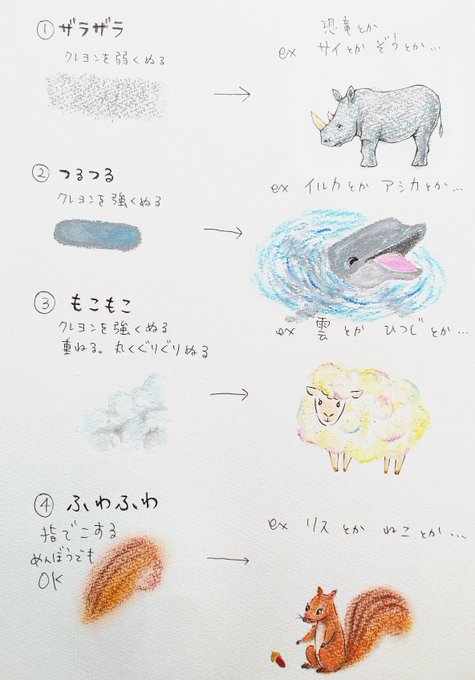 ① ザラザラ
クレヨンを弱くぬる
恐竜とか
ex サイとか ぞうとか…
② つるつる
クレヨンを強くぬる
ex イルカとか アシカとか…
③ もこもこ
クレヨンを強くぬる
重ねる。丸くぐりぐりぬる
ex 雲とか ひつじとか…
④ ふわふわ
指でこする
めんぼうでも
OK
ex リスとか ねことか…